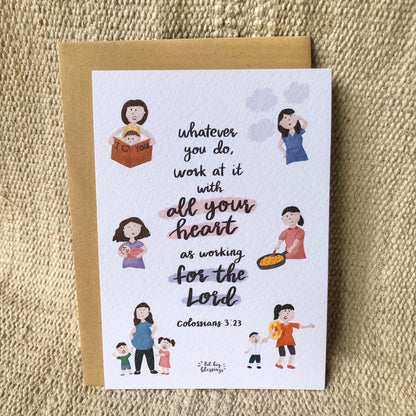 I ♥ YOU
whatever
you do,
work at it
with
all your
heart
as working
for the
Lord
Colossians 3:23
lil big
blessings